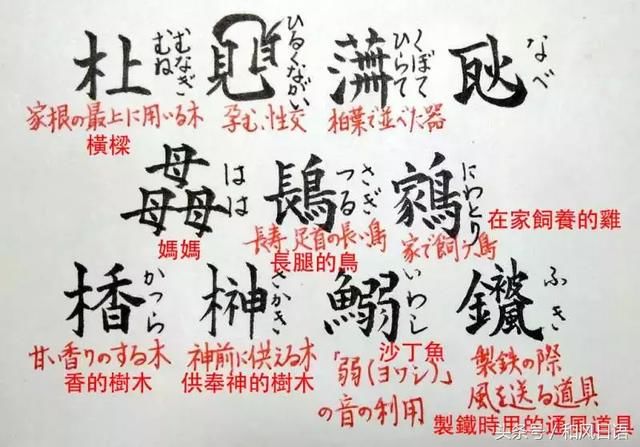 むなぎ
むね
ひるくながい
くぼて
ひらて
なべ
家根の最上に用いる木
孕む、性交
柏葉で並べた器
橫樑
はは
さぎ
つる
にわとり
媽媽
長寿、足首の長い鳥
長腿的鳥
家で飼う鳥
在家飼養的雞
かつら
榊
さかき
鰯
いわし
ふき
甘い香りのする木
香的樹木
神前に供える木
供奉神的樹木
沙丁魚
「弱(ヨワシ)」
の音の利用
製鉄の際
風を送る道具
製鐵時用的通風道具
头条号/和风日语